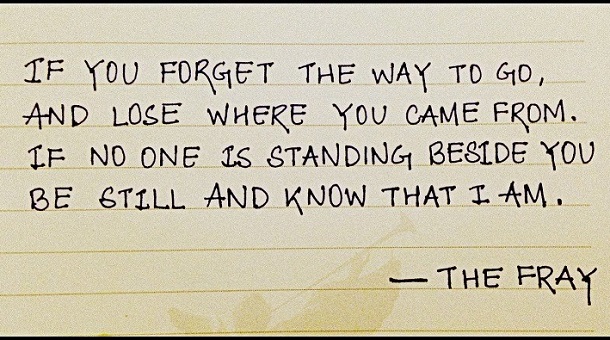 IF YOU FORGET THE WAY TO GO,
AND LOSE WHERE YOU CAME FROM.
IF NO ONE IS STANDING BESIDE YOU
BE STILL AND KNOW THAT I AM.
— THE FRAY